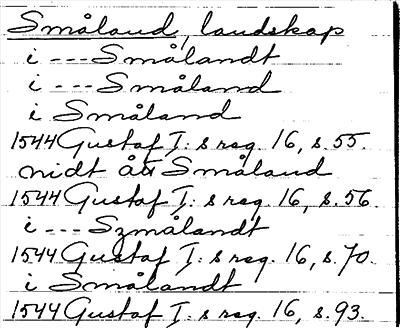 Småland, landskap
i --- Smålandt
i --- Småland
i Småland
1544 Gustaf I:s reg. 16, s. 55.
nidt ått Småland
1544 Gustaf I:s reg. 16, s. 56.
i --- Szmålandt
1544 Gustaf I:s reg. 16, s. 70.
i Smålandt
1544 Gustaf I:s reg. 16, s. 93.